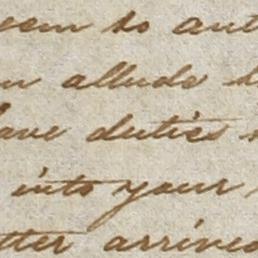 seem to aut
allude
have duties
into your
tter arrived